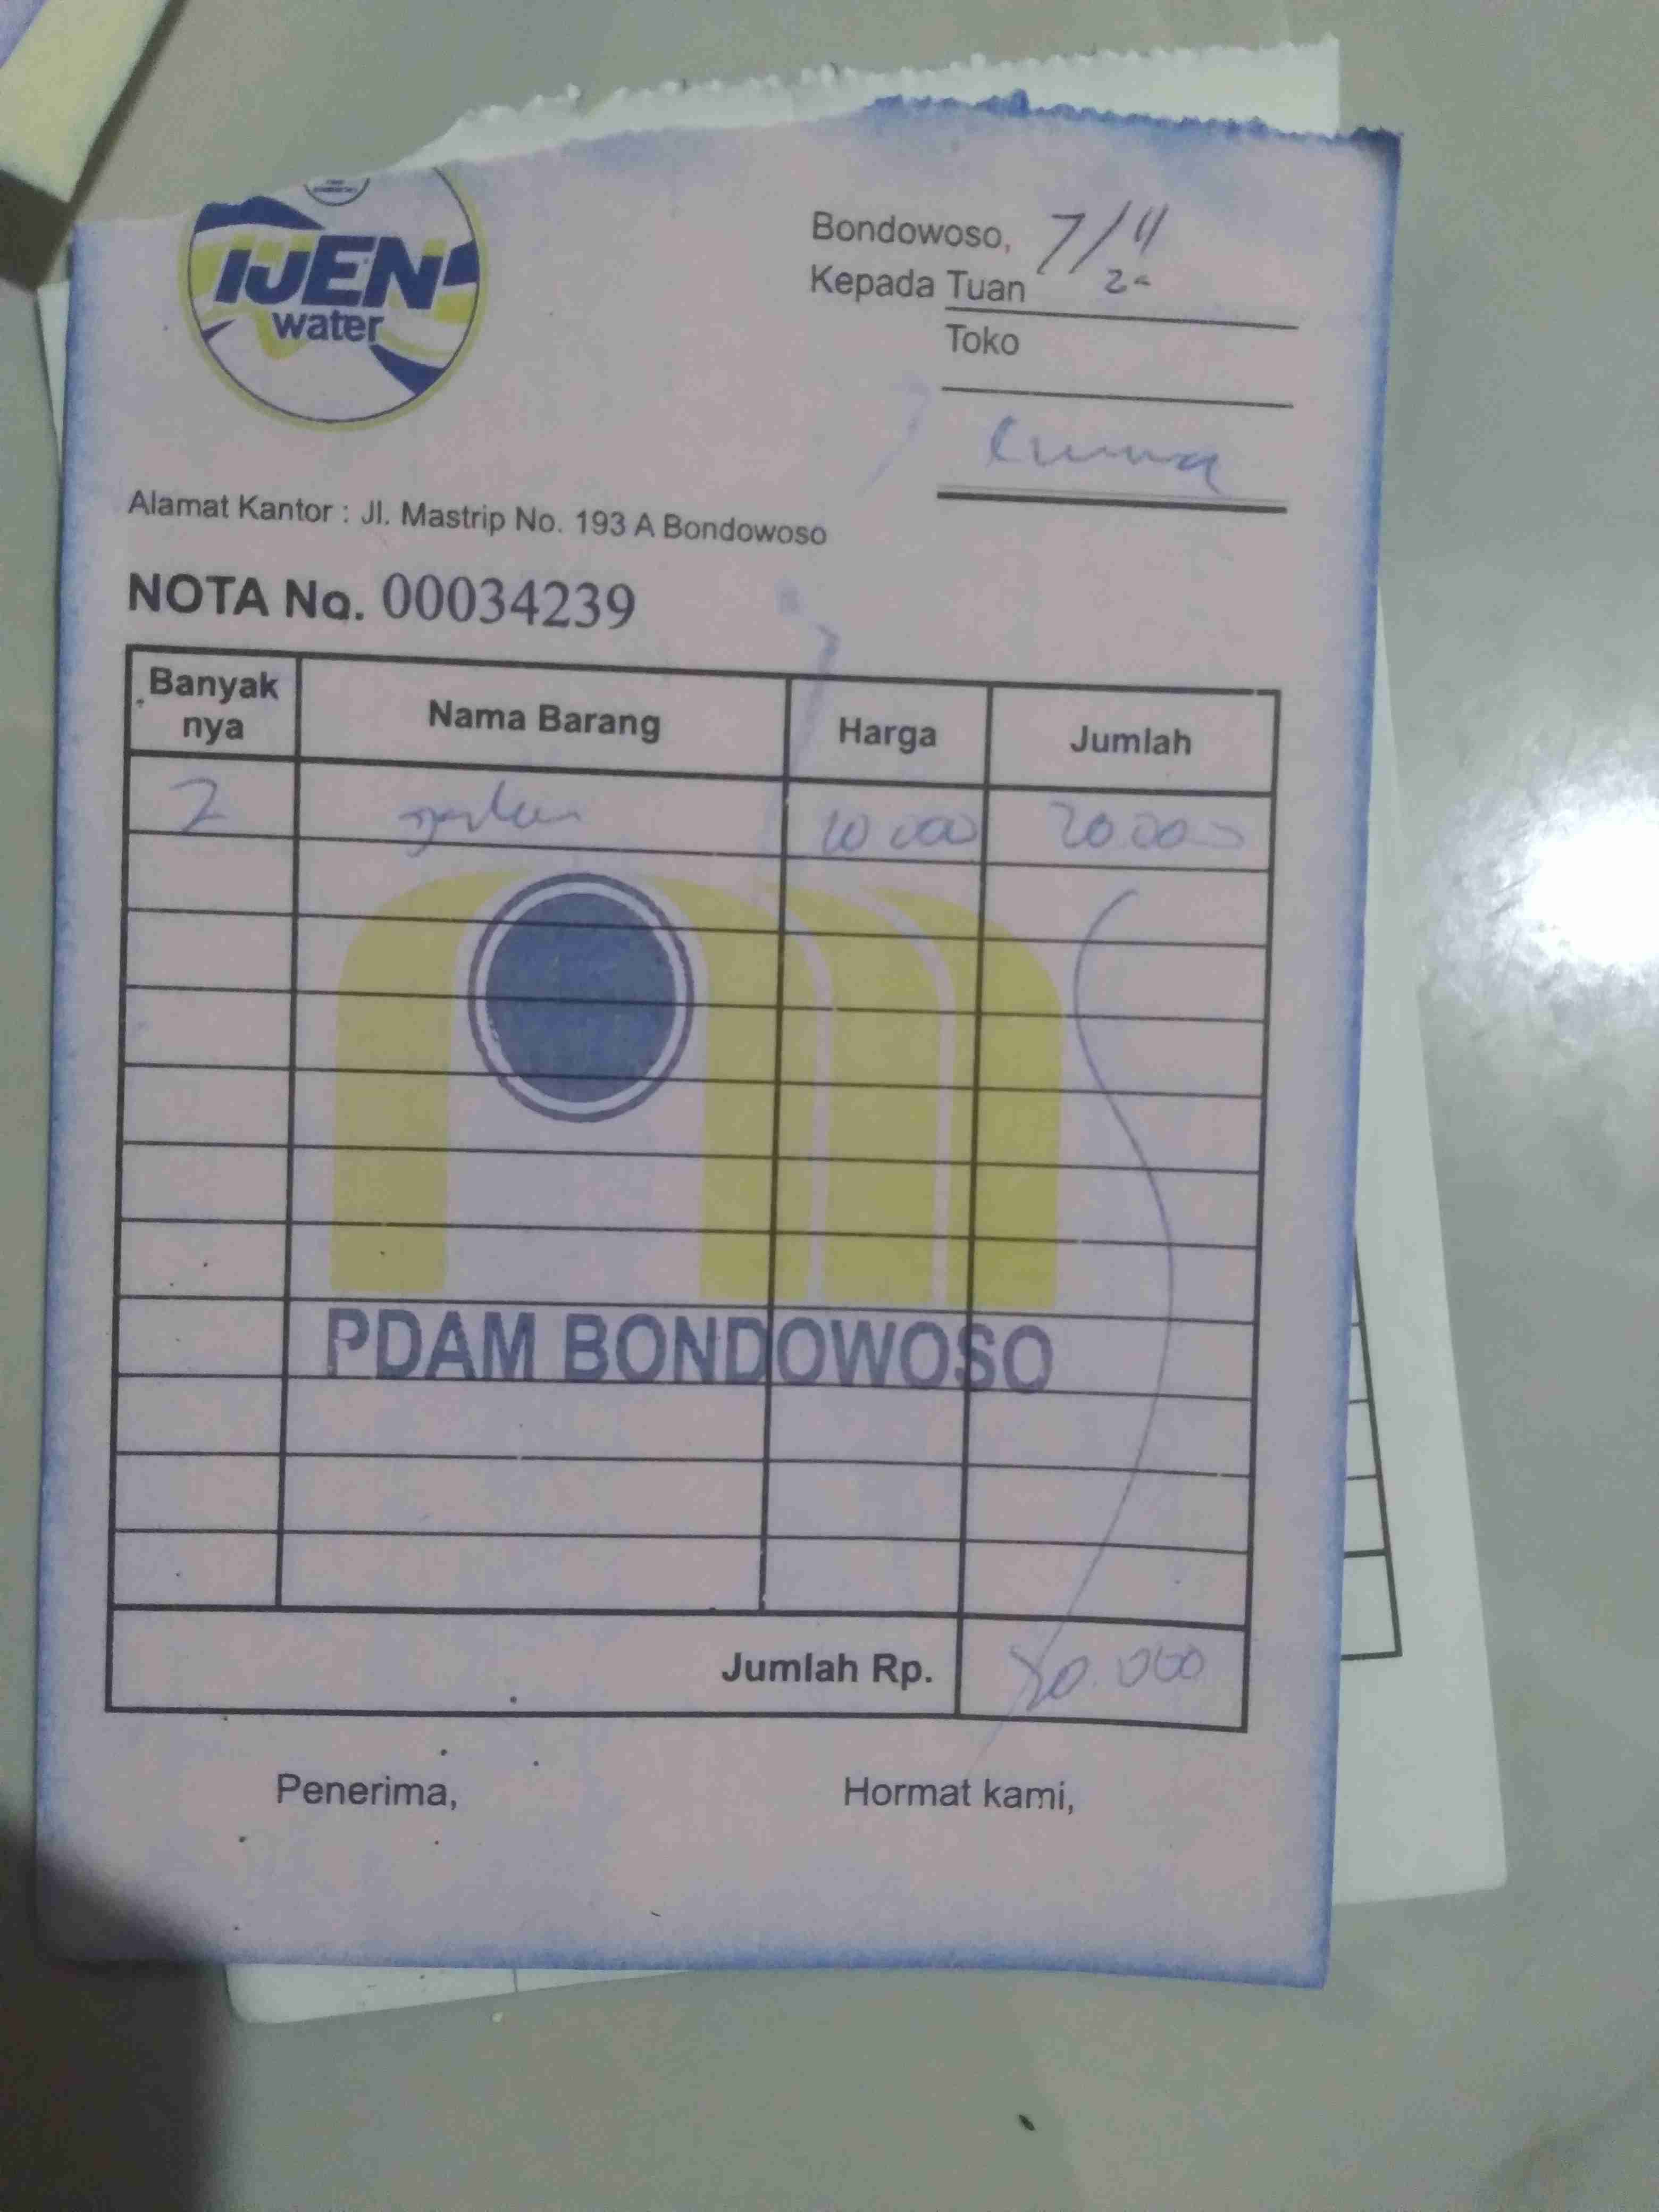 IJEN
water
Bondowoso, 7/11
Kepada Tuan
Toko
Alamat Kantor : Jl. Mastrip No. 193 A Bondowoso
NOTA No. 00034239
Banyak nya Nama Barang Harga Jumlah
2 10 000 20 000
PDAM BONDOWOSO
Jumlah Rp. 20.000
Penerima, Hormat kami,